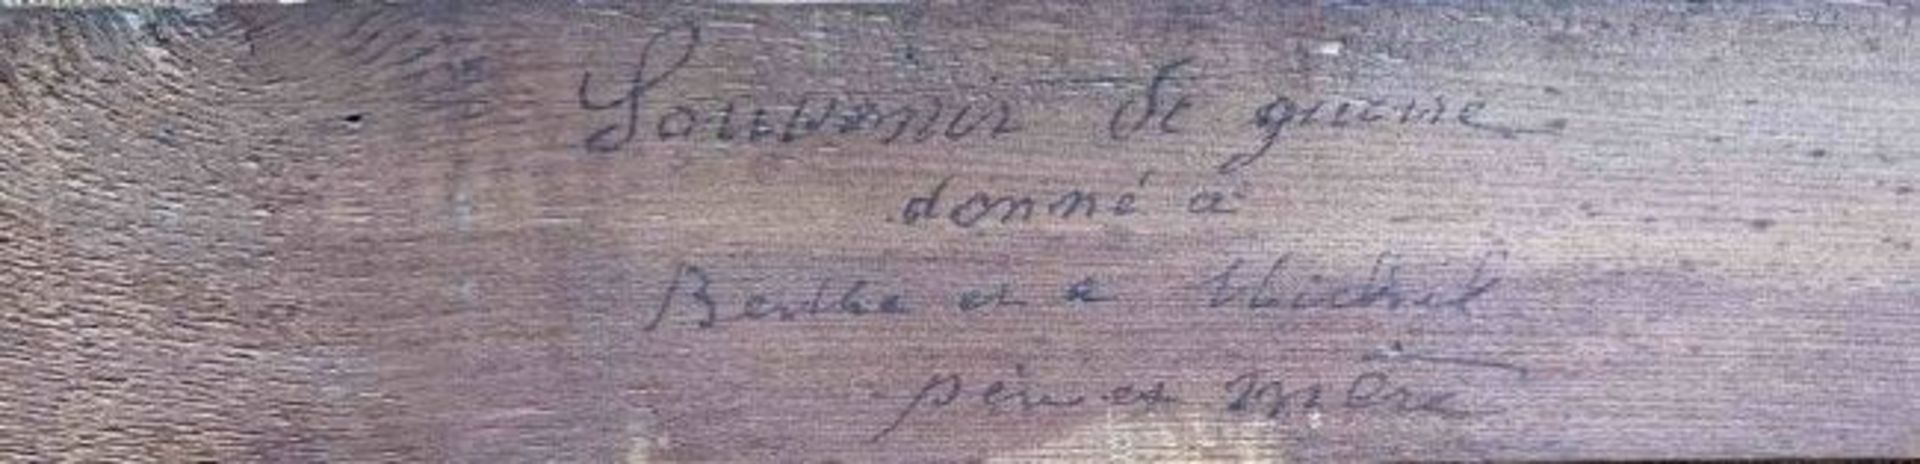 Souvenir de guerre
donné a
Berthe et a Michel
père et mère